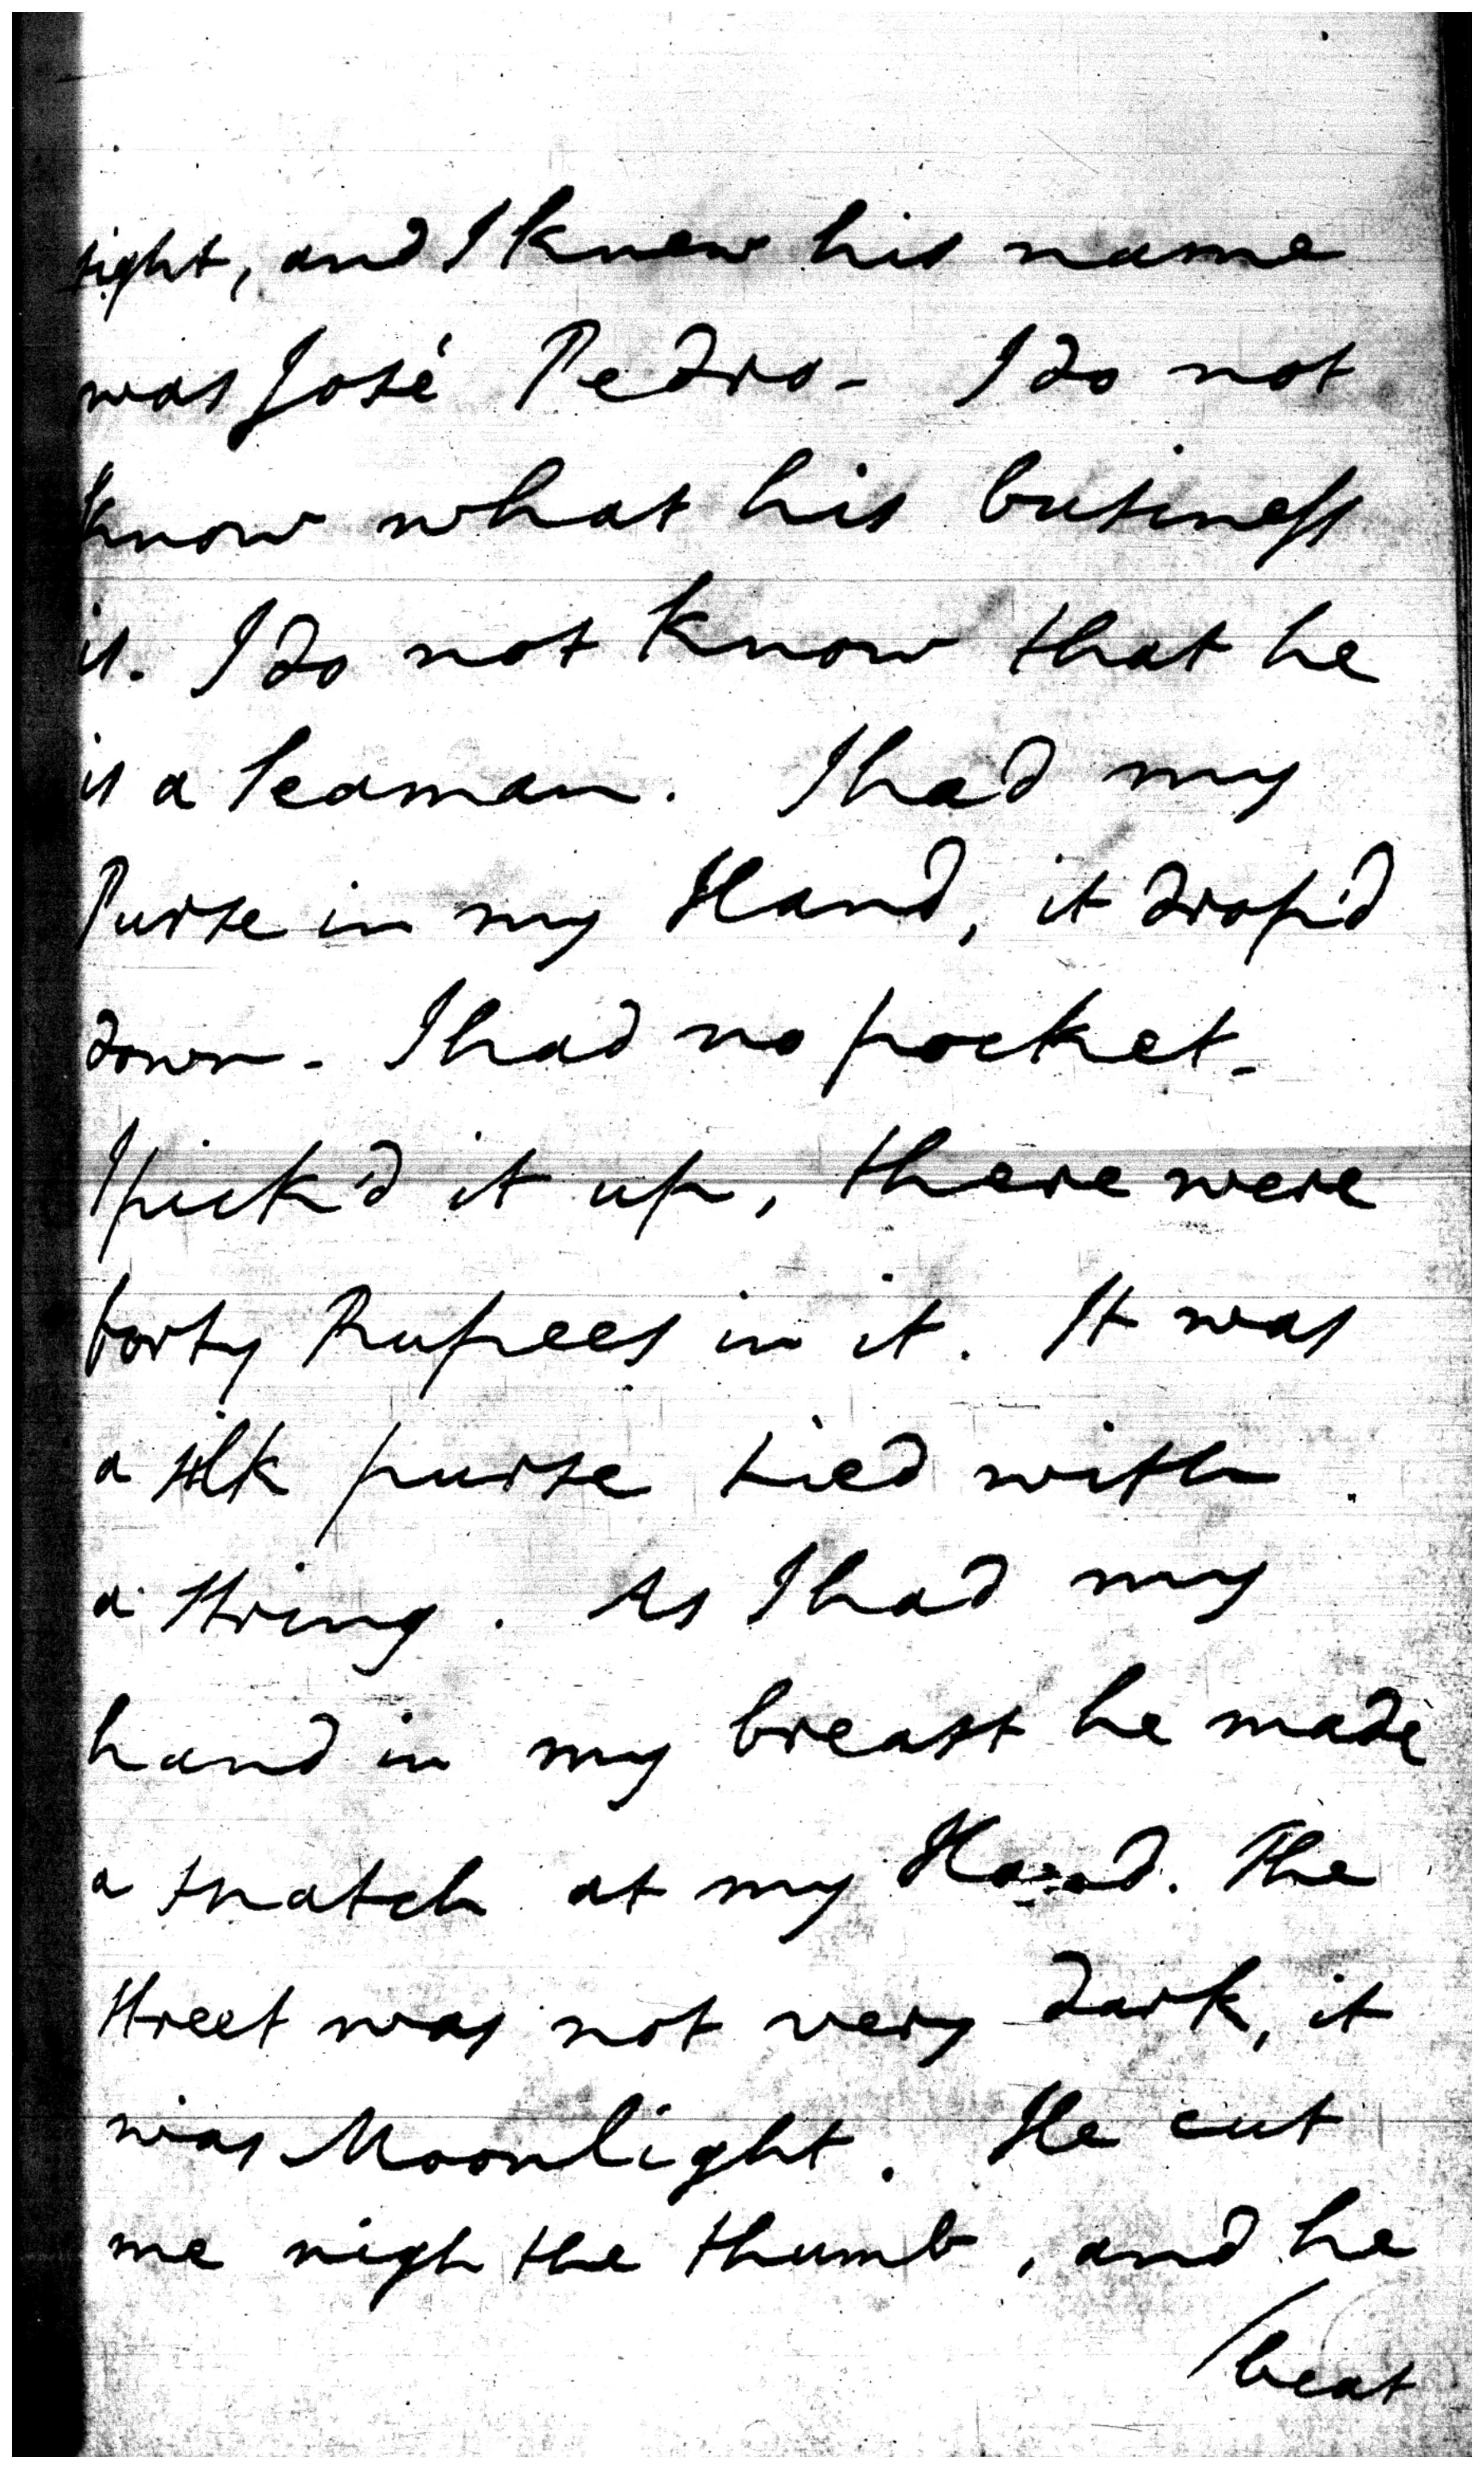 sight, and I knew his name
was José Pedro - I do not
know what his business
is. I do not know that he
is a Seaman. I had my
Purse in my Hand, it drop'd
down - I had no pocket -
I pick'd it up, there were
forty Rupees in it. It was
a silk purse tied with
a string. As I had my
hand in my breast he made
a snatch at my Hand. The
street was not very dark, it
was Moonlight. He cut
me nigh the thumb, and he
/beat